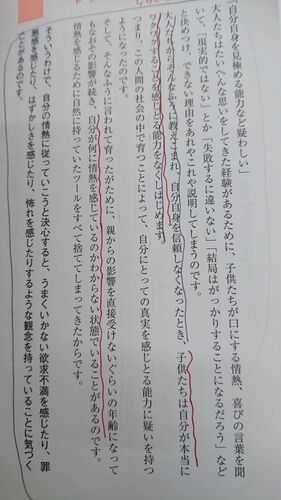 「自分自身を見極める能力など疑わしい」
大人たちはたいへんな思いをしてきた経験があるために、子供たちが口にする情熱、喜びの言葉を聞
いて、「現実的ではない」とか「失敗するに違いない」「結局はがっかりすることになるだろう」など
と決めつけ、できない理由をあれやこれや説明してしまうのです。
大人たちからそんなふうに教えこまれ、自分自身を信頼しなくなったとき、子供たちは自分が本当に
ワクワクすることを感じとる能力をなくしはじめます。
つまり、この人間の社会の中で育つことによって、自分にとっての真実を感じとる能力に疑いを持つ
ようになったのです。
そして、そんなふうに言われて育ったがために、親からの影響を直接受けないぐらいの年齢になって
もなおその影響が続き、自分が何に情熱を感じているのかわからない状態でいることがあるのです。
情熱を感じるために自然に持っていたツールをすべて捨ててしまってきたからです。
そういうわけで、自分の情熱に従っていこうと決心すると、うまくいかない欲求不満を感じたり、罪
悪感を感じたり、はずかしさを感じたり、怖れを感じたりするような観念を持っていることに気づく
ことがあるのです。